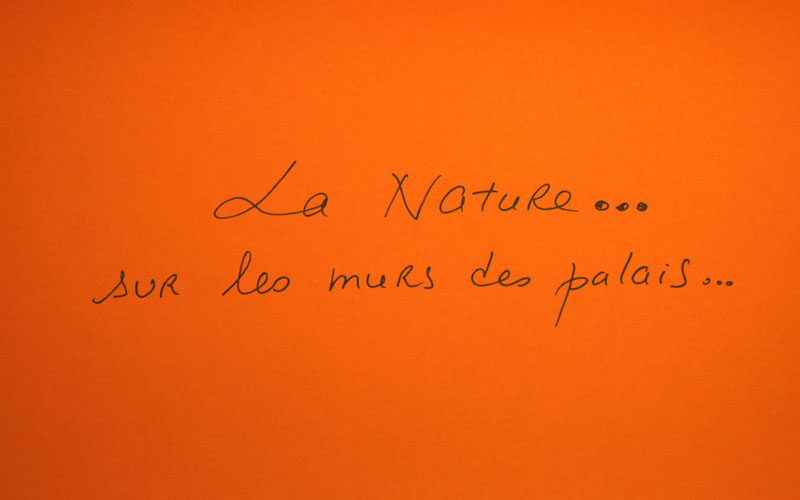 La Nature...
sur les murs des palais...